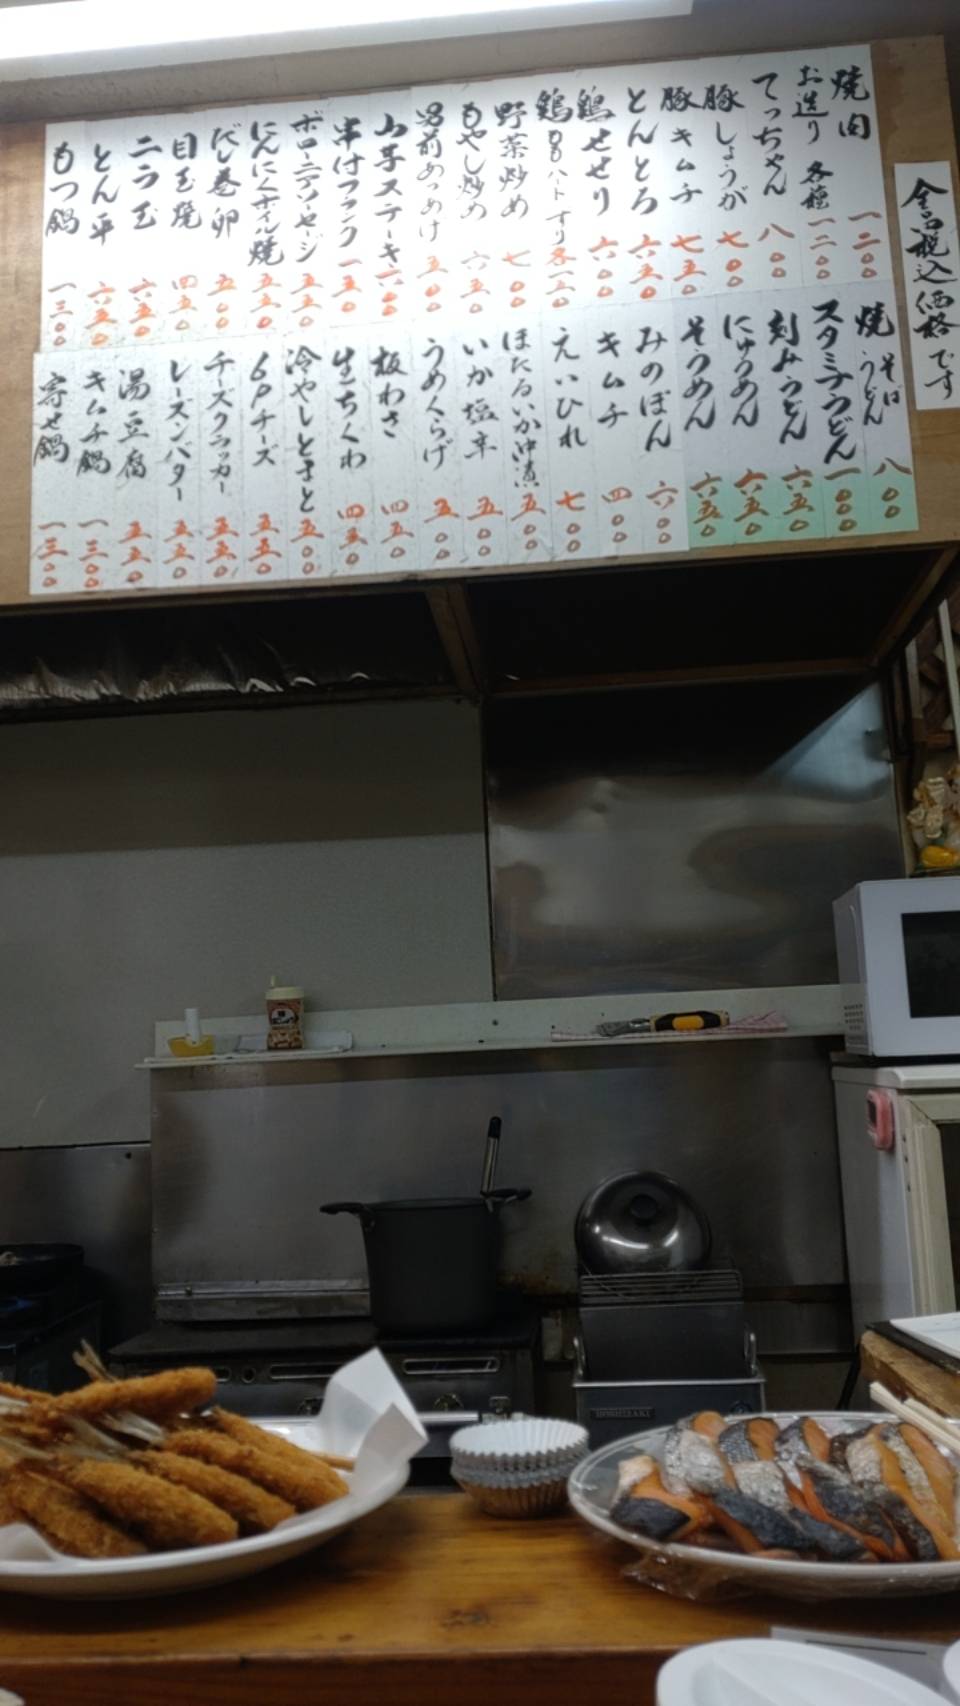 全品税込価格です
焼肉 一二〇〇
お造り 各種 一二〇〇
てっちゃん 八〇〇
豚しょうが 七〇〇
豚キムチ 七五〇
とんとろ 六五〇
鶏せせり 六〇〇
鶏ももハートずり 各一五〇
野菜炒め 七〇〇
もやし炒め 六五〇
湯前あつあげ 五〇〇
山芋ステーキ 六〇〇
串付フランク 一五〇
ボローニアソーセージ 五五〇
にんにくホイル焼 五五〇
だし巻卵 五〇〇
目玉焼 四五〇
ニラ玉 六五〇
とん平 六五〇
もつ鍋 一三〇〇
焼 そば うどん 八〇〇
スタミナうどん 一〇〇〇
刻みうどん 六五〇
にゅうめん 六五〇
そうめん 六五〇
みのぽん 六〇〇
キムチ 四〇〇
えいひれ 七〇〇
ほたるいか沖漬 五〇〇
いか塩辛 五〇〇
うめくらげ 五〇〇
板わさ 四五〇
生ちくわ 四五〇
冷やしとまと 五〇〇
6Pチーズ 五五〇
チーズクラッカー 五五〇
レーズンバター 五五〇
湯豆腐 五五〇
キムチ鍋 一三〇〇
寄せ鍋 一三〇〇
HOSHIZAKI